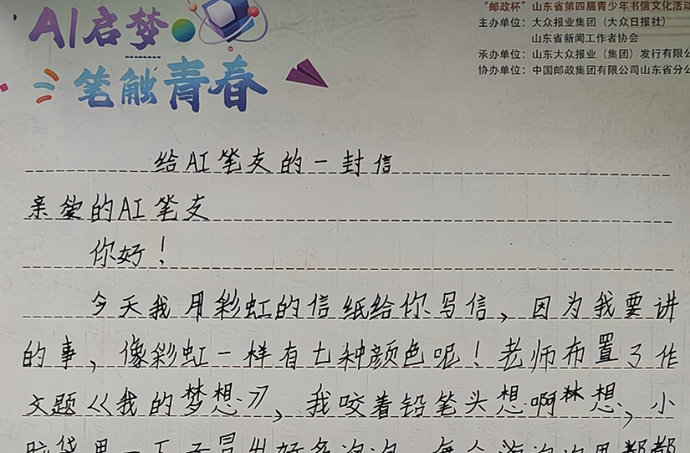 AI启梦
笔触青春
"邮政杯"山东省第四届青少年书信文化活动
主办单位：大众报业集团（大众日报社）
山东省新闻工作者协会
承办单位：山东大众报业（集团）发行有限公
协办单位：中国邮政集团有限公司山东省分公
给AI笔友的一封信
亲爱的AI笔友
你好！
今天我用彩虹的信纸给你写信，因为我要讲
的事，像彩虹一样有七种颜色呢！老师布置了作
文题《我的梦想》，我咬着铅笔头想啊想，小
脑袋里一下子冒出好多泡泡，每个泡泡里都